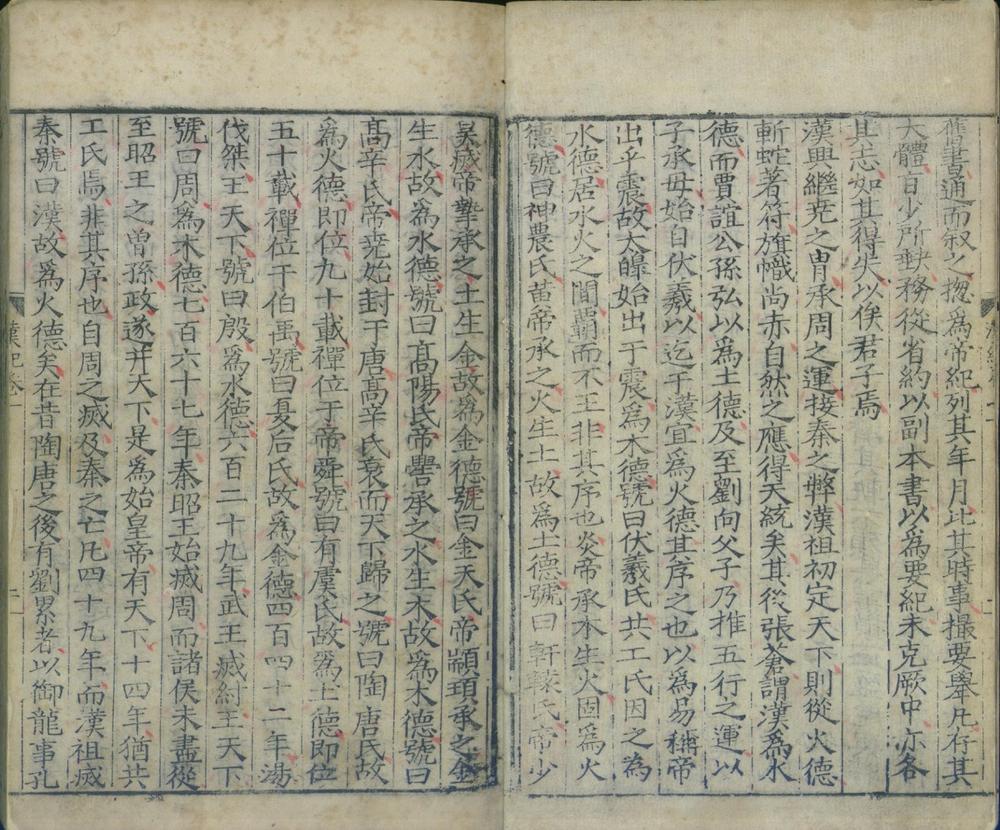 舊書通而叙之揔爲帝紀列其年月比其時事撮要舉凡存其
大體旨少所缺務從省約以副本書以為要紀未克厥中亦各
其志如其得失以俟君子焉
漢興繼堯之胄承周之運接秦之弊漢祖初定天下則從火德
斬蛇著符旗幟尚赤自然之應得天統矣其後張蒼謂漢為水
德而賈誼公孫弘以爲土德及至劉向父子乃推五行之運以
子承母始自伏羲以迄于漢宜爲火德其序之也以為易稱帝
出乎震故太皥始出于震爲木德號曰伏羲氏共工氏因之為
水德居水火之間霸而不王非其序也炎帝承木生火固為火
德號曰神農氏黃帝承之火生土故爲土德號曰軒轅氏帝少
昊滅帝摯承之土生金故爲金德號曰金天氏帝顓頊承之金
生水故爲水德號曰髙陽氏帝嚳承之水生木故爲木德號曰
髙辛氏帝堯始封于唐髙辛氏衰而天下歸之號曰陶唐氏故
爲火德即位九十載禪位于帝舜號曰有虞氏故爲土德即位
五十載禪位于伯禹號曰夏后氏故爲金德四百四十二年湯
伐桀王天下號曰殷爲水德六百二十九年武王滅紂王天下
號曰周爲木德七百六十七年秦昭王始滅周而諸侯未盡從
至昭王之曾孫政遂并天下是為始皇帝有天下十四年猶共
工氏焉非其序也自周之滅及秦之亡凡四十九年而漢祖滅
秦號曰漢故爲火德矣在昔陶唐之後有劉累者以御龍事孔
漢紀卷一